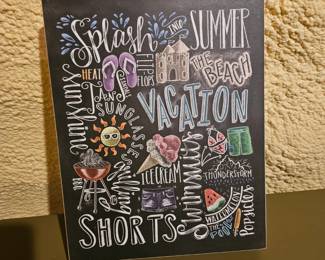 Splash into SUMMER
Sunshine
HEAT
FLIP FLOPS
THE BEACH
TAN
SUNGLASSES
VACATION
ICE CREAM
THUNDERSTORM
Swimming
WATERMELON
THE POOL
Popsicles
SHORTS